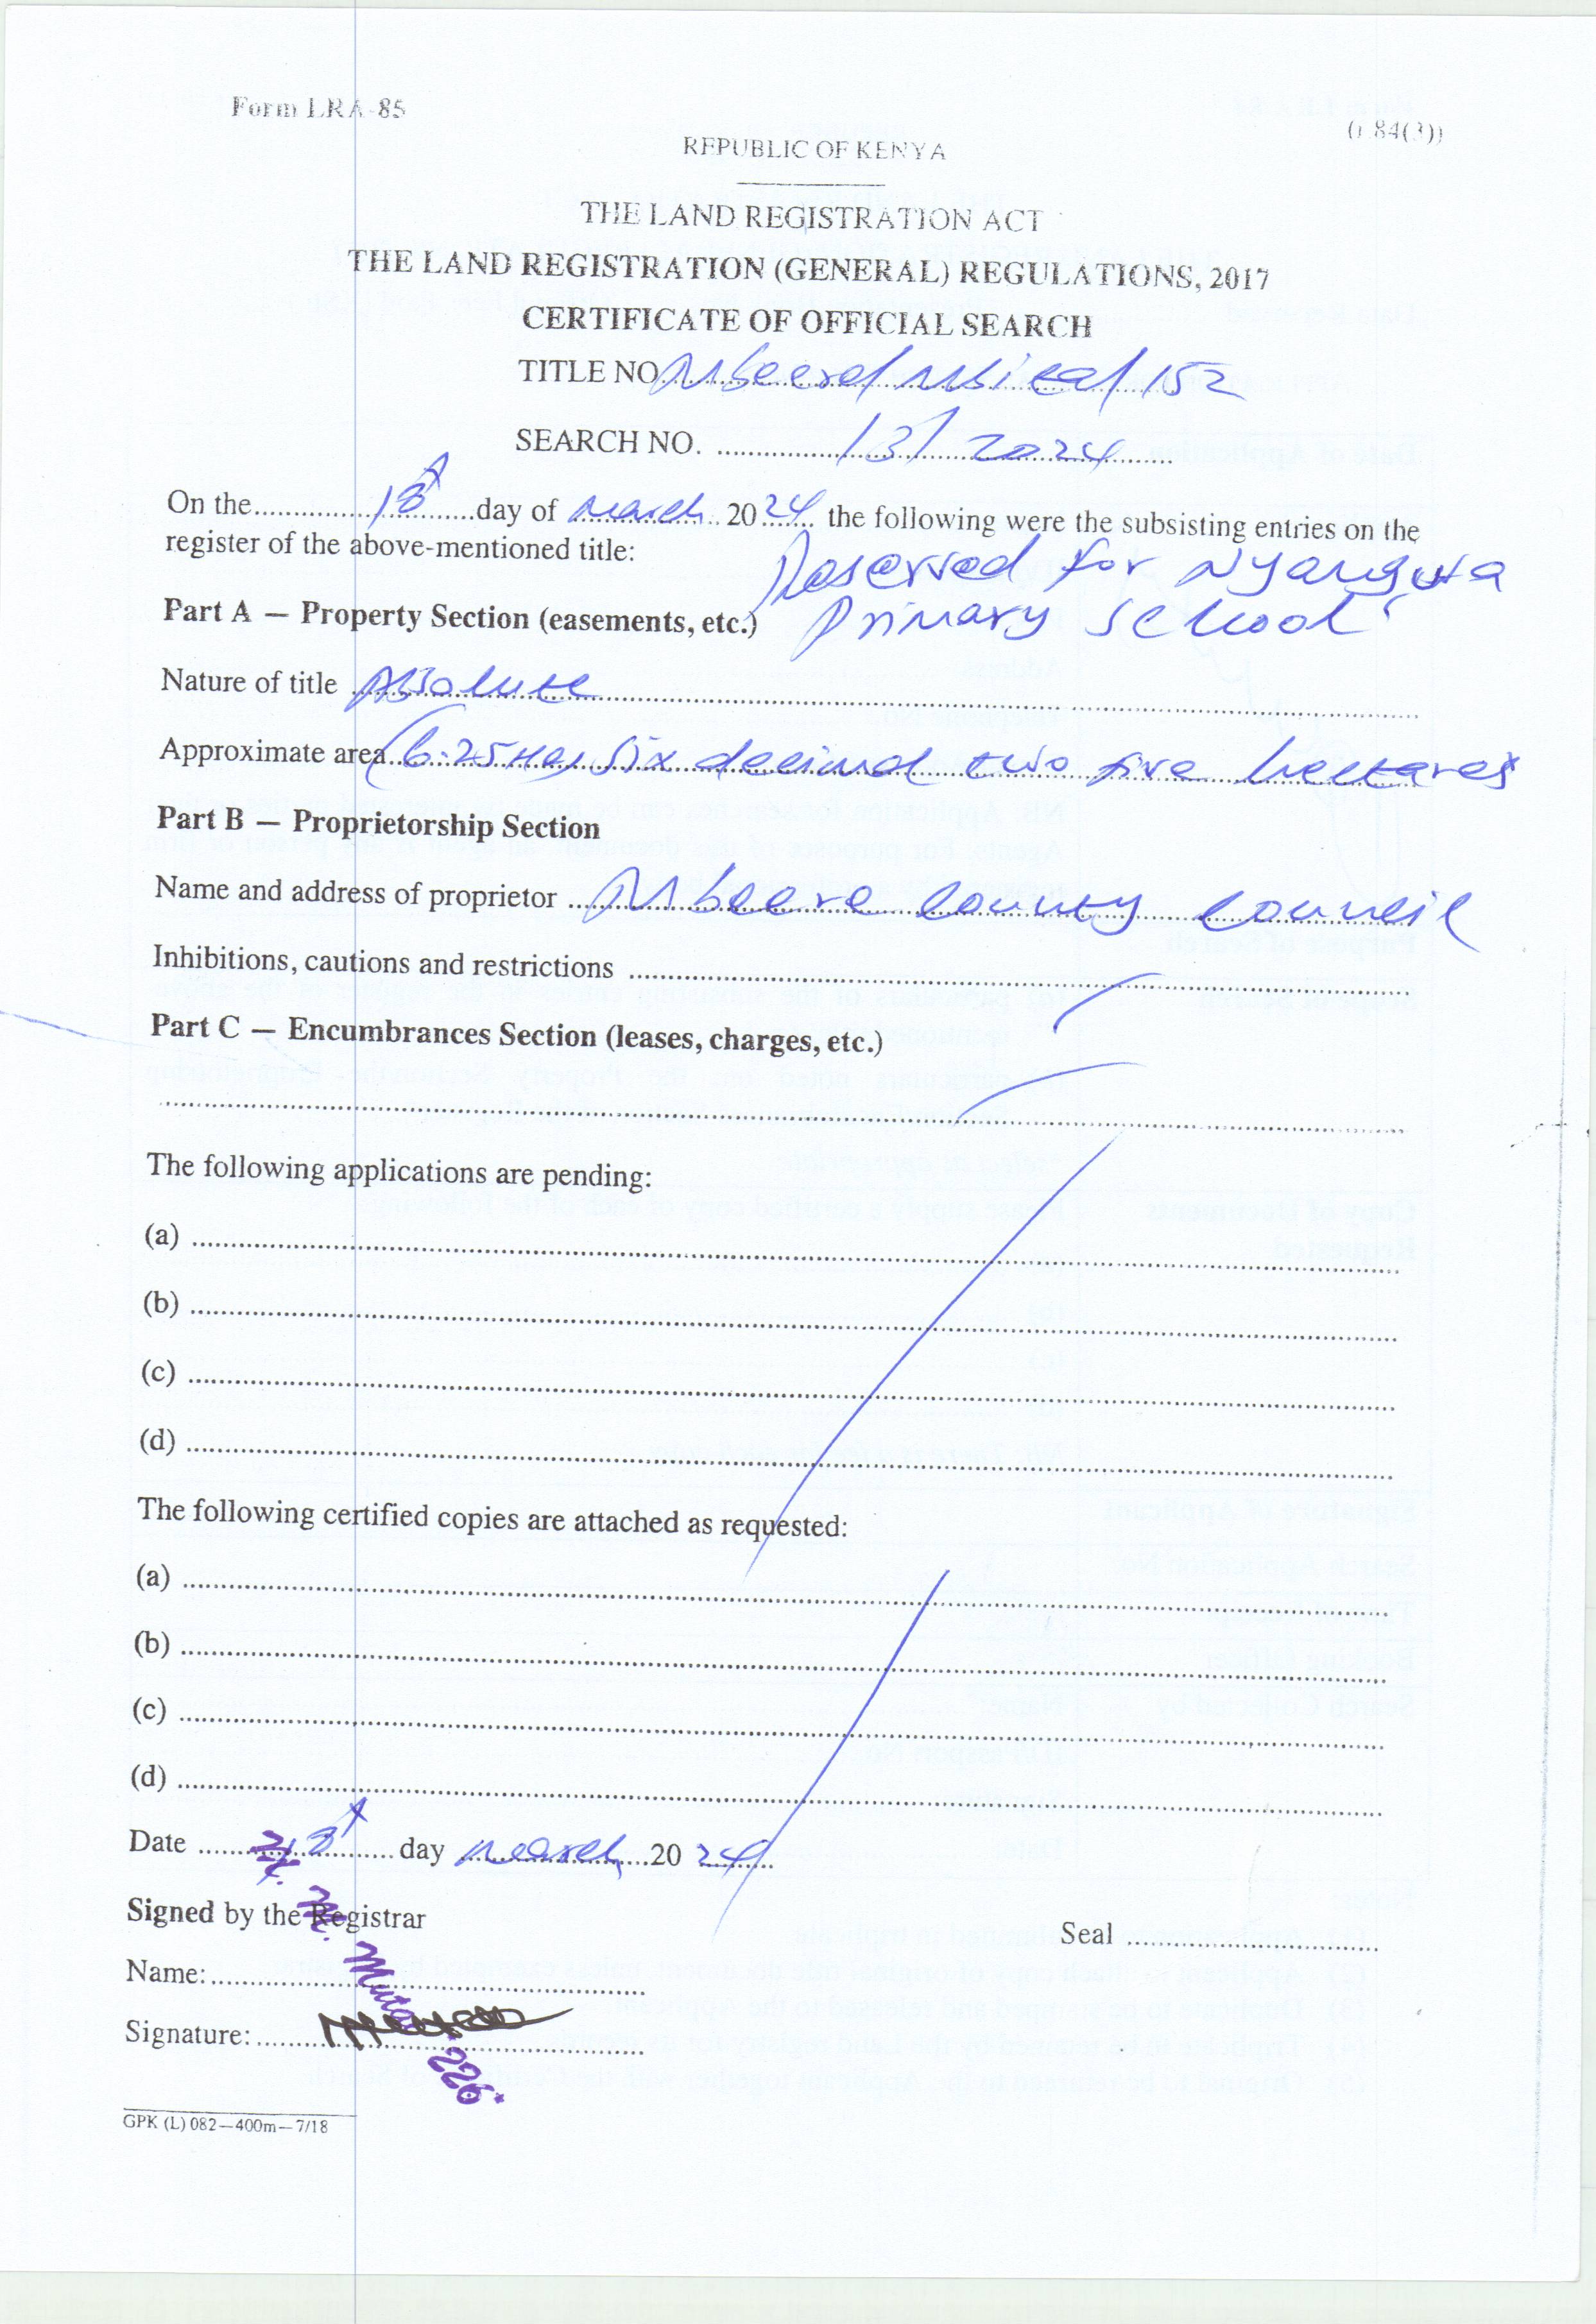 Form LRA-85
(r 84(3))
REPUBLIC OF KENYA
THE LAND REGISTRATION ACT
THE LAND REGISTRATION (GENERAL) REGULATIONS, 2017
CERTIFICATE OF OFFICIAL SEARCH
TITLE NO. Mbeere/Mbita/152
SEARCH NO. 13/2024
On the 18th day of March 2024 the following were the subsisting entries on the
register of the above-mentioned title:
Reserved for Nyangwa
Part A — Property Section (easements, etc.) Primary School
Nature of title Absolute
Approximate area (6.25Ha) Six decimal two five hectares
Part B — Proprietorship Section
Name and address of proprietor Mbeere County Council
Inhibitions, cautions and restrictions
Part C — Encumbrances Section (leases, charges, etc.)
The following applications are pending:
(a)
(b)
(c)
(d)
The following certified copies are attached as requested:
(a)
(b)
(c)
(d)
Date 18th day March 2024
Signed by the Registrar
Seal
Name:
Signature:
226
GPK (L) 082—400m—7/18